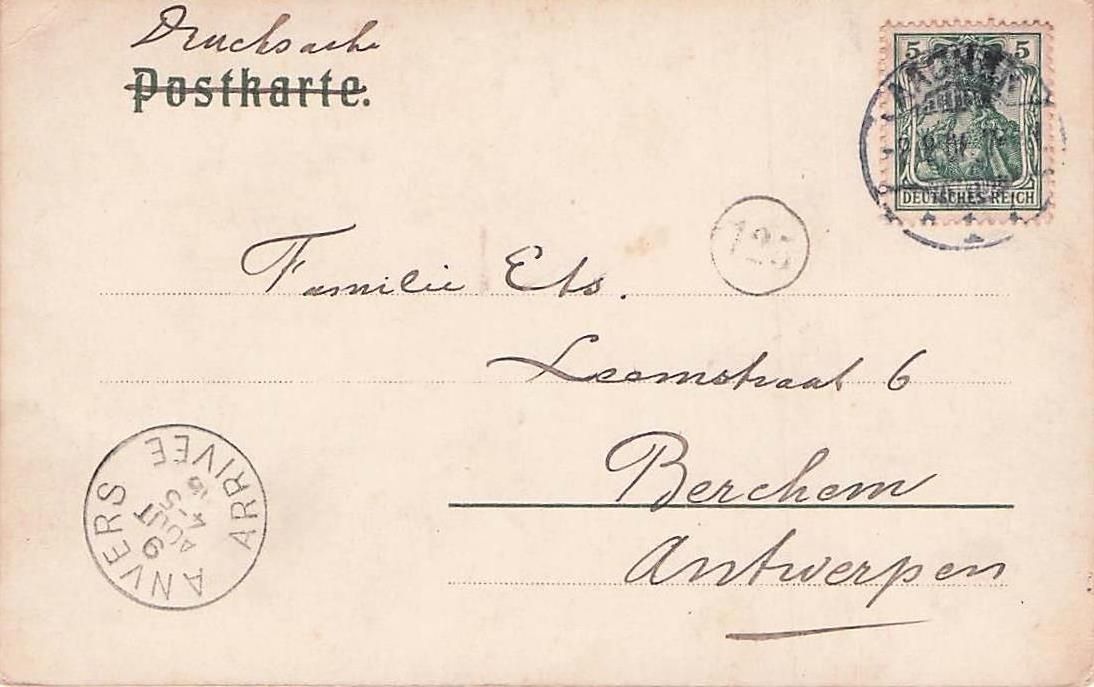 Drucksache
Postkarte.
5 5
AACHEN
DEUTSCHES REICH
1
125
Familie Ets.
Leemstraat 6
Berchem
Antwerpen
ANVERS ARRIVEE
9
AOUT
4-5